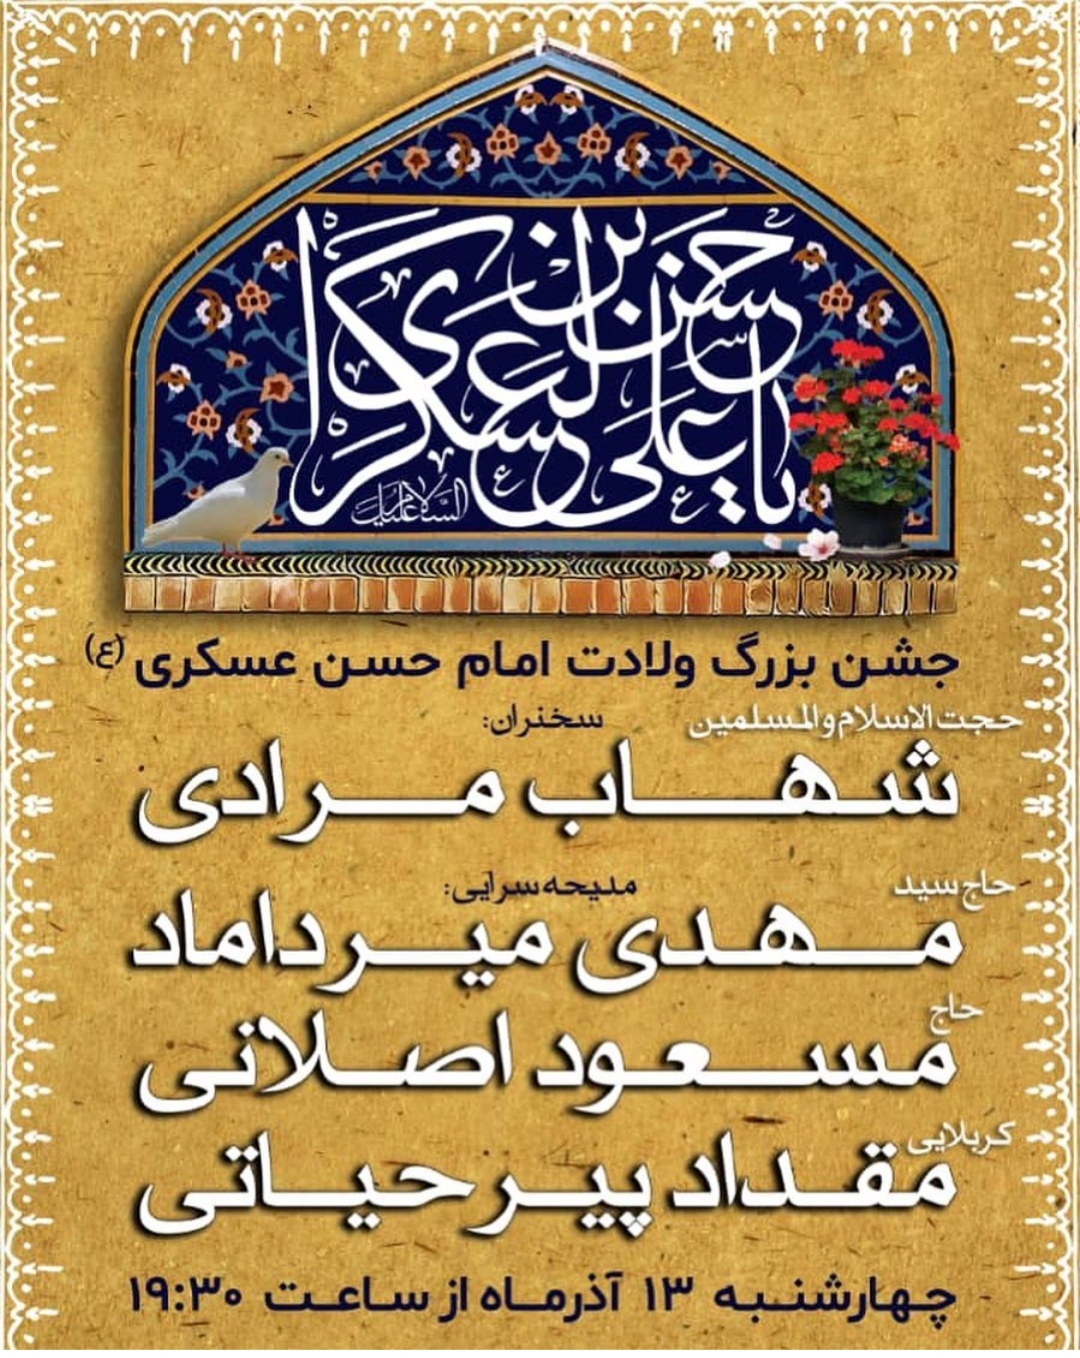 یا حسن بن علی العسکری
السلام علیک
جشن بزرگ ولادت امام حسن عسکری (ع)
سخنران:
حجت الاسلام والمسلمین
شهاب مرادی
مدیحه سرایی:
حاج سید
مهدی میرداماد
حاج
مسعود اصلانی
کربلایی
مقداد پیرحیاتی
چهارشنبه ۱۳ آذرماه از ساعت ۱۹:۳۰